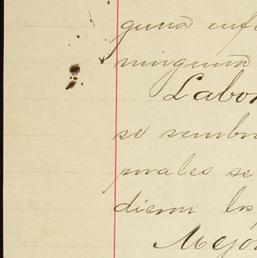 guna enf
ninguna
Labor
se sembr
males se
dieron los
Mejor